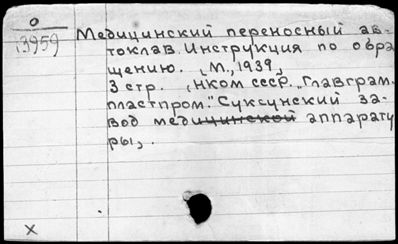 0
13959
Медицинский переносный ав-
токлав. Инструкция по обра
щению. [М., 1939]
3 стр. [НКОМ СССР. "Главграм-
пластпром". Суксунский за-
вод медицинской аппарату
ры].
X